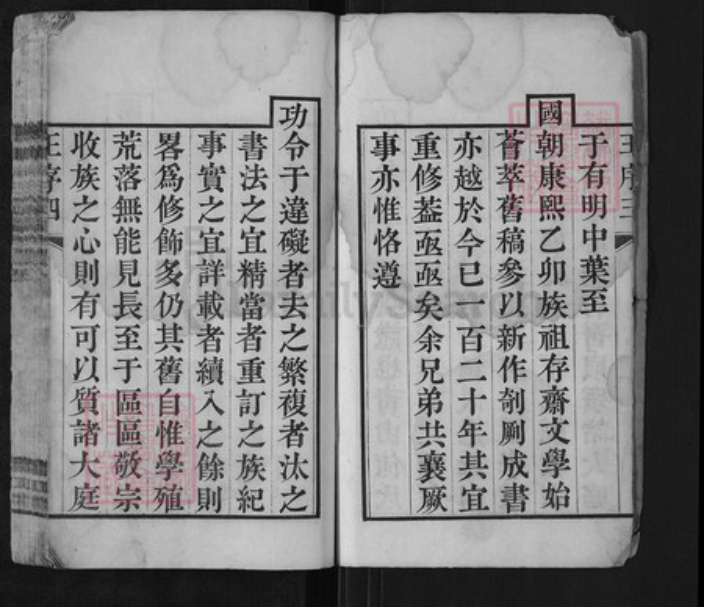 王序三
于有明中葉至
國朝康熙乙卯族祖存齋文學始
薈萃舊稿參以新作剞劂成書
亦越於今已一百二十年其宜
重修葢亟亟矣余兄弟共襄厥
事亦惟恪遵
功令于違礙者去之繁複者汰之
書法之宜精當者重訂之族紀
事實之宜詳載者續入之餘則
畧爲修飾多仍其舊自惟學殖
荒落無能見長至于區區敬宗
收族之心則有可以質諸大庭
王序四